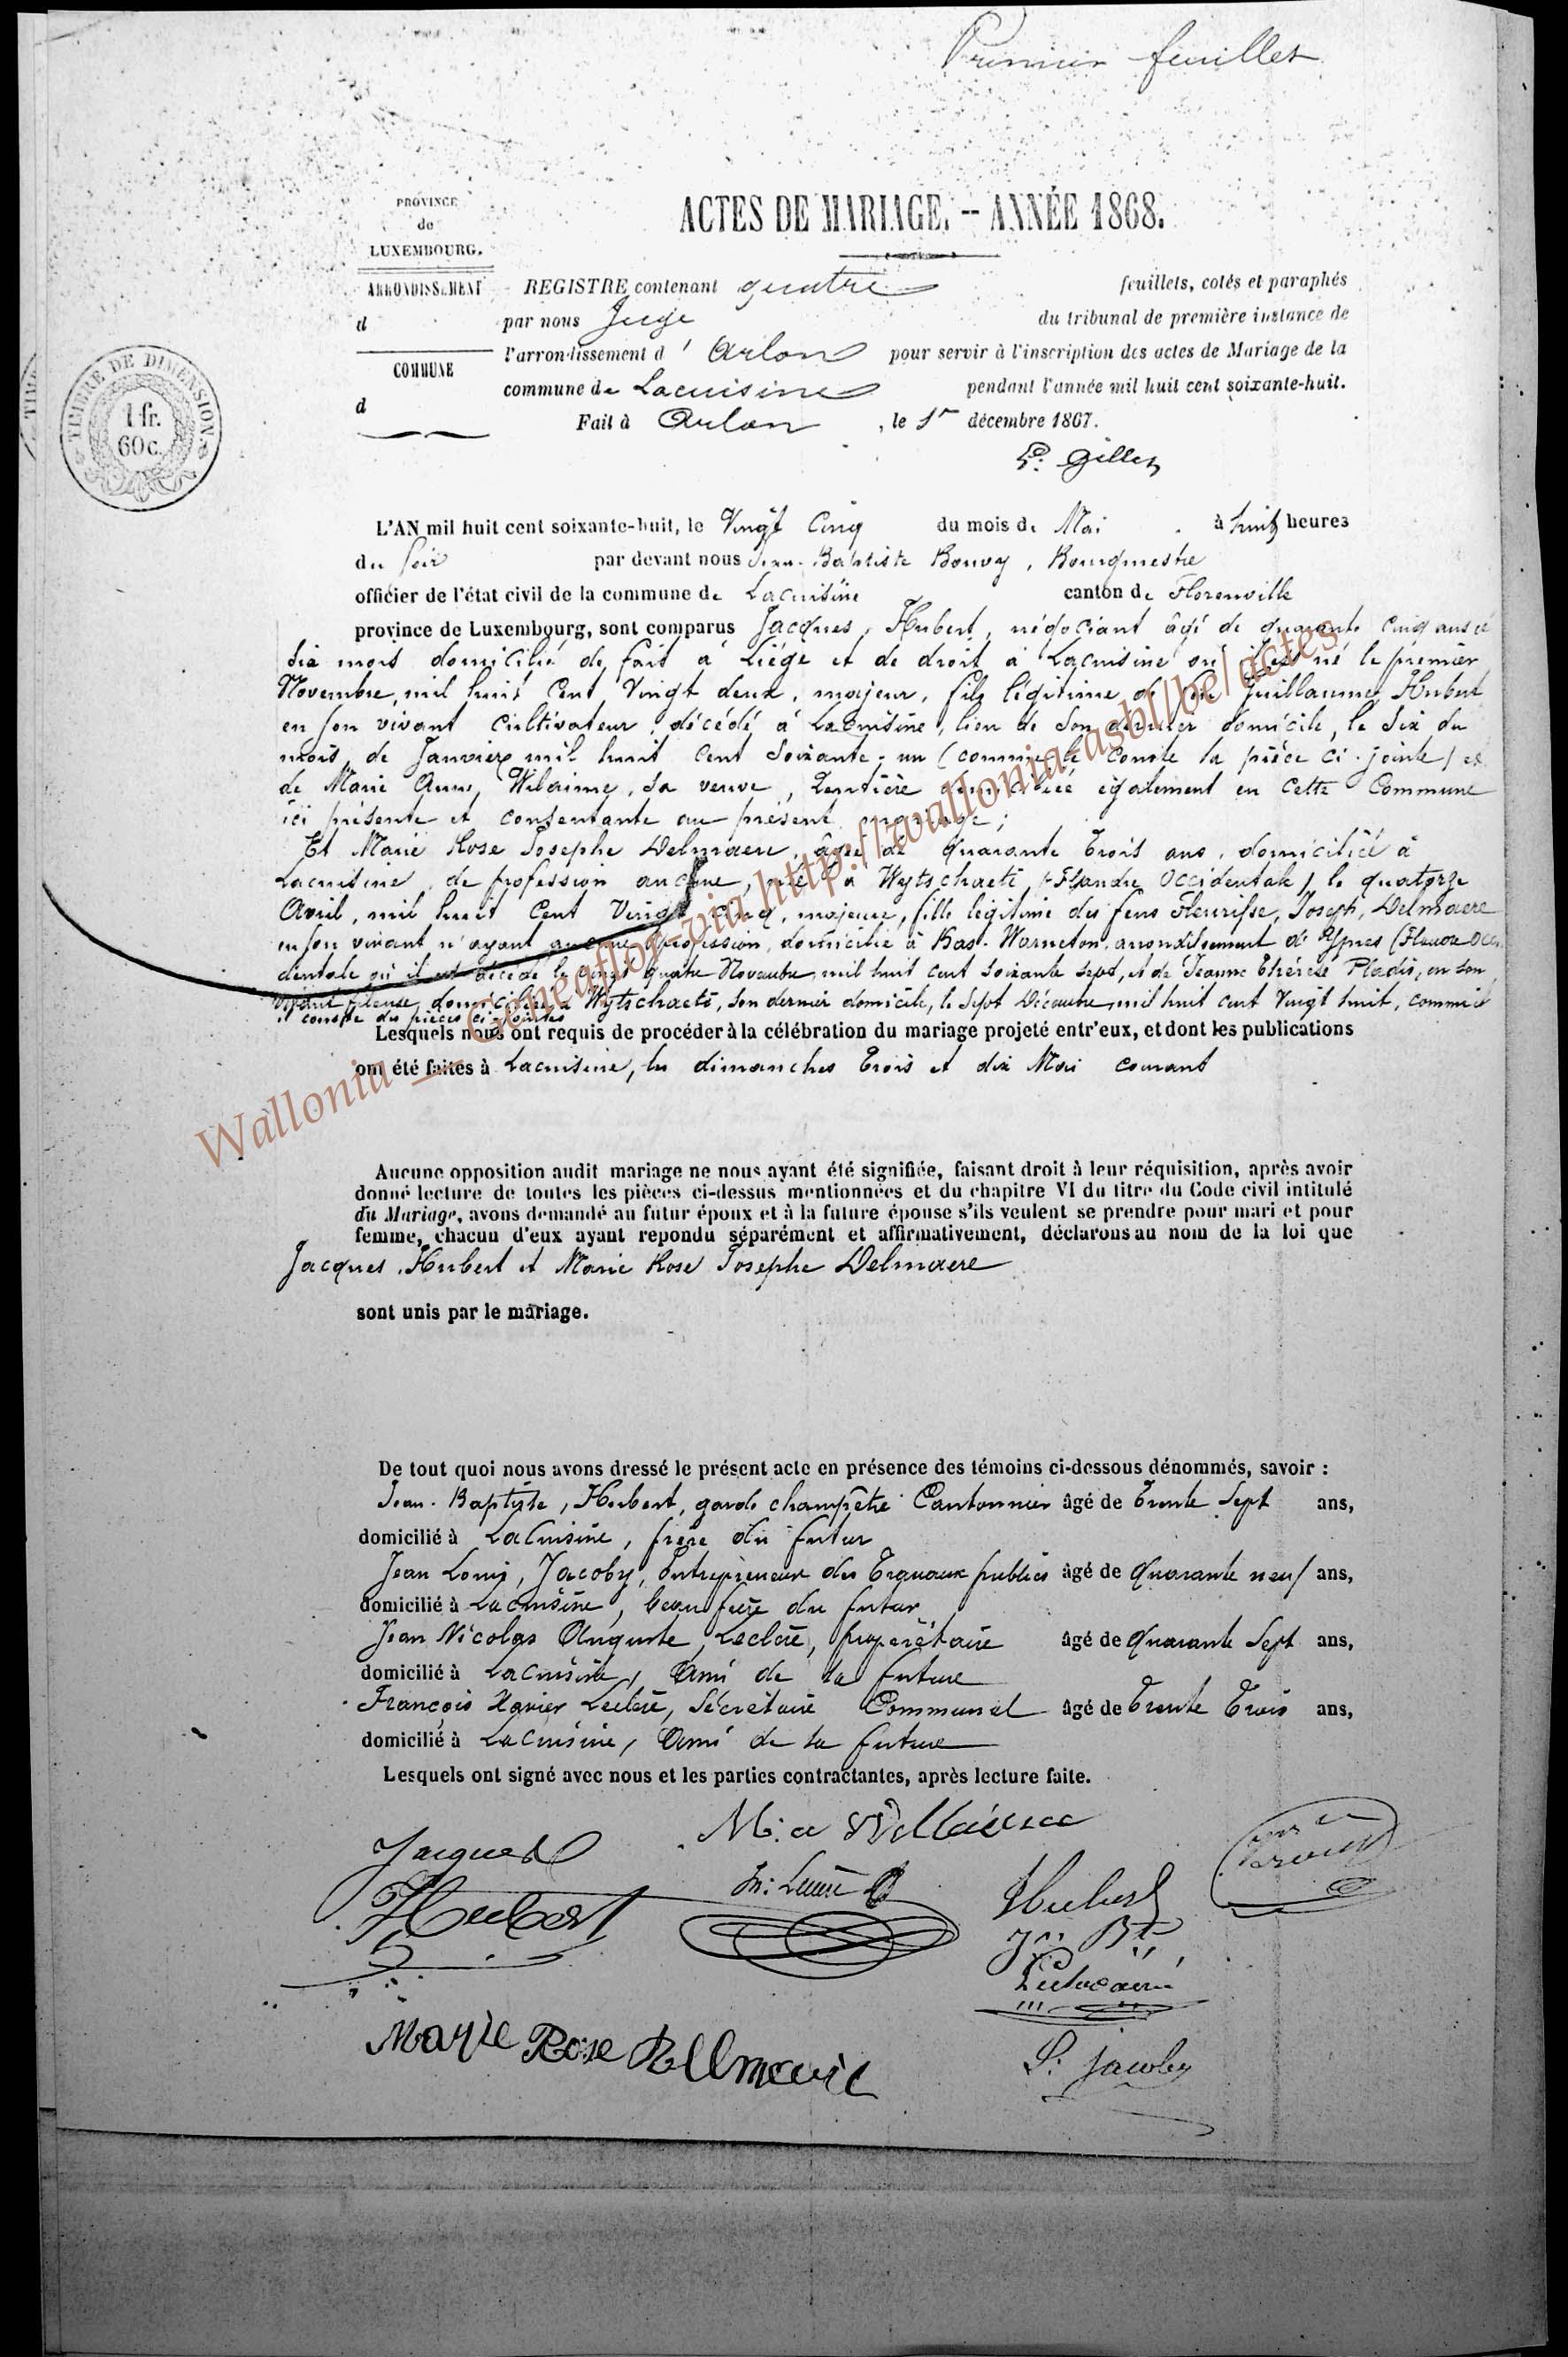 Premier feuillet
PROVINCE
de
LUXEMBOURG.
ARRONDISSEMENT
d
COMMUNE
d
TIMBRE DE DIMENSION
1 fr.
60 c.
ACTES DE MARIAGE. -- ANNÉE 1868.
REGISTRE contenant quatre feuillets, cotés et paraphés
par nous Juge du tribunal de première instance de
l'arrondissement d' Arlon pour servir à l'inscription des actes de Mariage de la
commune de Lacuisine pendant l'année mil huit cent soixante-huit.
Fait à Arlon, le 1er décembre 1867.
L'AN mil huit cent soixante-huit, le Vingt Cinq du mois de Mai à huit heures
du Soir par devant nous Jean-Baptiste Bouvy, Bourgmestre
officier de l'état civil de la commune de Lacuisine canton de Florenville
province de Luxembourg, sont comparus Jacques, Hubert, négociant âgé de quarante cinq ans et
six mois domicilié de fait à Liége et de droit à Lacuisine où il est né le premier
Novembre mil huit Cent Vingt deux, majeur, fils légitime de feu Guillaume Hubert
en son vivant cultivateur, décédé à Lacuisine, lieu de son dernier domicile, le Six du
mois de Janvier mil huit cent Soixante-un (comme le Conste la pièce ci-jointe) et
de Marie Anne, Wilaime, sa veuve, Rentière domiciliée également en cette Commune
ici présente et consentante au présent mariage;
Et Marie Rose Josephe Delmaere, âgée de quarante Trois ans, domiciliée à
Lacuisine, de profession aucune, née à Wytschaete (Flandre Occidentale) le quatorze
Avril, mil huit Cent Vingt cinq, majeure, fille légitime des feus Joseph, Delmaere
en son vivant n'ayant aucune profession, domicilié à Bas-Warneton, arrondissement d'Ypres (Flandre Occi
dentale où il est décédé le vingt quatre Novembre mil huit cent soixante sept, et de Jeanne Thérèse Pladis, en son
vivant fileuse, domiciliée à Wytschaete, son dernier domicile, le Sept Décembre mil huit cent Vingt huit, comme il
il conste des pièces ci-jointes
Lesquels nous ont requis de procéder à la célébration du mariage projeté entr'eux, et dont les publications
ont été faites à Lacuisine, les dimanches Trois et dix Mai courant
Aucune opposition audit mariage ne nous ayant été signifiée, faisant droit à leur réquisition, après avoir
donné lecture de toutes les pièces ci-dessus mentionnées et du chapitre VI du titre du Code civil intitulé
du Mariage, avons demandé au futur époux et à la future épouse s'ils veulent se prendre pour mari et pour
femme, chacun d'eux ayant repondu séparément et affirmativement, déclarons au nom de la loi que
Jacques, Hubert et Marie Rose Josephe Delmaere
sont unis par le mariage.
De tout quoi nous avons dressé le présent acte en présence des témoins ci-dessous dénommés, savoir :
Jean-Baptiste, Hubert, garde champêtre Cantonnier âgé de Trente Sept ans,
domicilié à Lacuisine, frère du futur
Jean Louis, Jacoby, Entrepreneur des Travaux publics âgé de quarante neuf ans,
domicilié à Lacuisine, beau frère du futur
Jean Nicolas Auguste, Leclere, propriétaire âgé de quarante Sept ans,
domicilié à Lacuisine, Ami de la future
François Xavier Leclere, Secrétaire Communal âgé de Trente Trois ans,
domicilié à Lacuisine, Ami de la future
Lesquels ont signé avec nous et les parties contractantes, après lecture faite.
Jacques
Hubert
Hubert
Jn Bt
L. Jacoby
Marie Rose Dellmerie
Wallonia - Geneaflor-via http://wallonia-asbl/be/actes